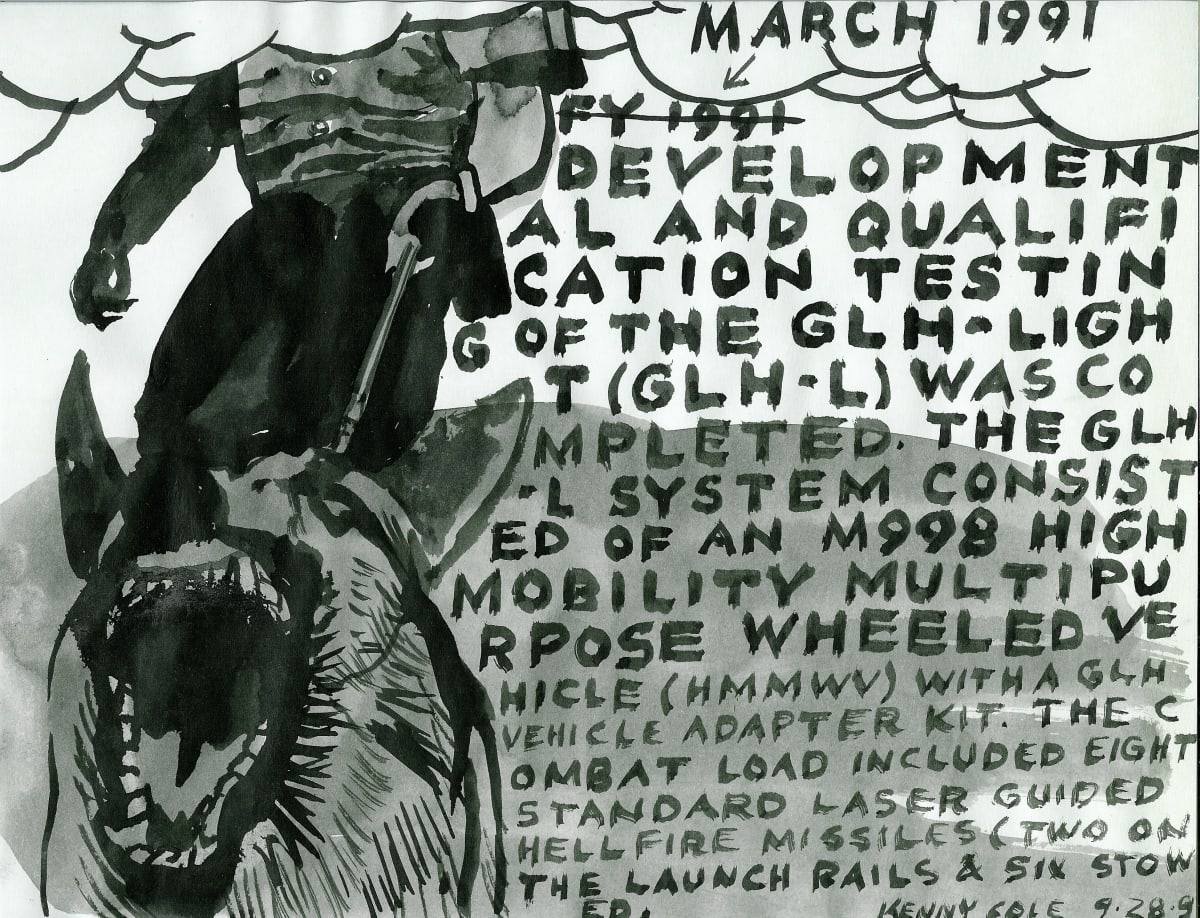 MARCH 1991
FY 1991
DEVELOPMENT
AL AND QUALIFI
CATION TESTIN
G OF THE GLH-LIGH
T (GLH-L) WAS CO
MPLETED. THE GLH
-L SYSTEM CONSIST
ED OF AN M998 HIGH
MOBILITY MULTIPU
RPOSE WHEELED VE
HICLE (HMMWV) WITH A GLH
VEHICLE ADAPTER KIT. THE C
OMBAT LOAD INCLUDED EIGHT
STANDARD LASER GUIDED
HELLFIRE MISSILES (TWO ON
THE LAUNCH RAILS & SIX STOW
ED.
KENNY COLE 9.28.9